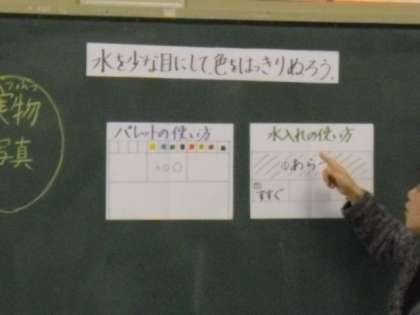 水を少な目にして、色をはっきりぬろう。
実物
写真
パレットの使い方
水入れの使い方
あら
すすぐ